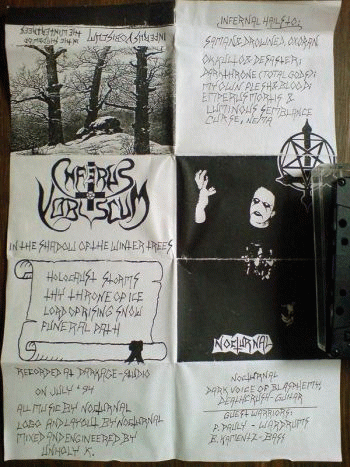 IN THE SHADOW OF
THE WINTERTREES
INFERUS VOBISCUM
INFERUS
VOBISCUM
IN THE SHADOW OF THE WINTER TREES
HOLOCAUST STORMS
THY THRONE OF ICE
LORD OF RISING SNOW
FUNERAL PATH
RECORDED AT DARKAGE-STUDIO
ON JULY '94
ALL MUSIC BY NOCTURNAL
LOGO AND LAYOUT BY NOCTURNAL
MIXED AND ENGINEERED BY
UNHOLY K.
INFERNAL HAILS TO:
SAMAN & DROWNED, OXORAN
OKKULTO & DESASTER;
DARKTHRONE (TOTAL GODS);
MY OWN FLESH & BLOOD;
EMPERUS MORTUS &
LUMINOUS SEMBLANCE
CURSE, NEMA
NOCTURNAL
NOCTURNAL
DARK VOICE OF BLASPHEMY,
DEATHCRUSH-GUITAR
GUESTWARRIORS:
P. DAULY - WARDRUMS
B. KAMENTZ-BASS